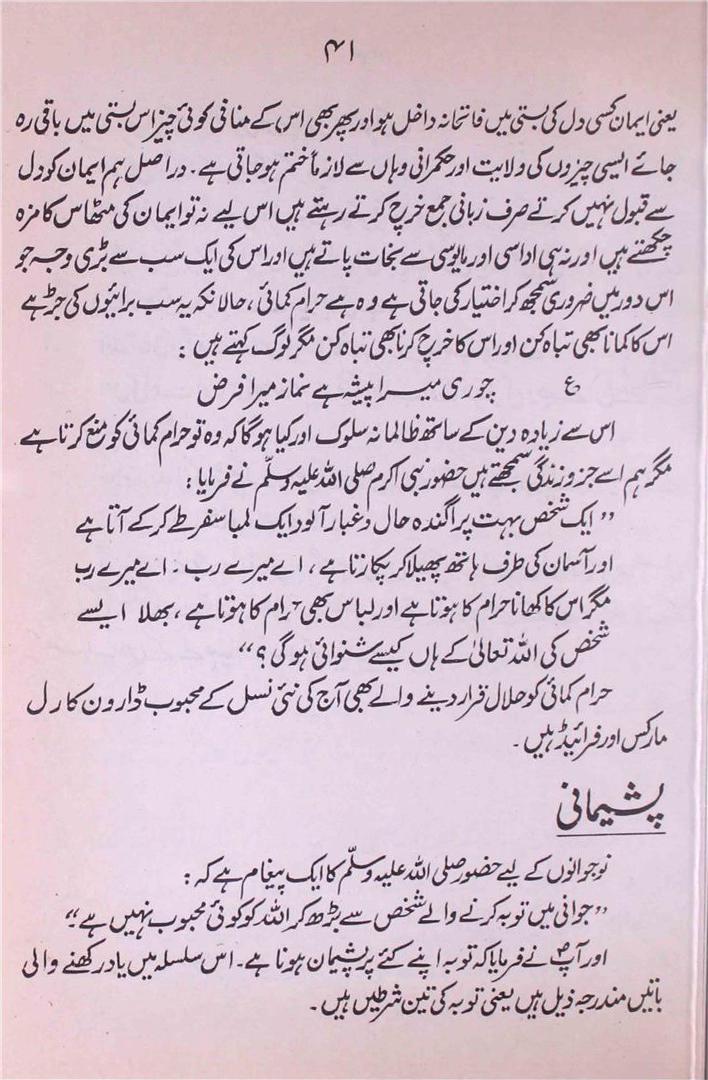 ۴۱
یعنی ایمان کسی دل کی بستی میں فاتحانہ داخل ہو اور پھر بھی اس کے منافی کوئی چیز اس بستی میں باقی رہ
جائے ایسی چیزوں کی ولایت اور حکمرانی وہاں سے لازماً ختم ہو جاتی ہے۔ دراصل ہم ایمان کو دل
سے قبول نہیں کرتے صرف زبانی جمع خرچ کرتے رہتے ہیں اس لیے نہ تو ایمان کی مٹھاس کا مزہ
چکھتے ہیں اور نہ ہی اداسی اور مایوسی سے نجات پاتے ہیں اور اس کی ایک سب سے بڑی وجہ جو
اس دور میں ضروری سمجھ کر اختیار کی جاتی ہے وہ ہے حرام کمائی، حالانکہ یہ سب برائیوں کی جڑ ہے
اس کا کمانا بھی تباہ کن اور اس کا خرچ کرنا بھی تباہ کن مگر لوگ کہتے ہیں :
ع چوری میرا پیشہ ہے نماز میرا فرض
اس سے زیادہ دین کے ساتھ ظالمانہ سلوک اور کیا ہوگا کہ وہ تو حرام کمائی کو منع کرتا ہے
مگر ہم اسے جزو زندگی سمجھتے ہیں حضور نبی اکرم صلی اللہ علیہ وسلّم نے فرمایا :
”ایک شخص بہت پراگندہ حال و غبار آلود ایک لمبا سفر طے کر کے آتا ہے
اور آسمان کی طرف ہاتھ پھیلا کر پکارتا ہے، اے میرے رب۔ اے میرے رب
مگر اس کا کھانا حرام کا ہوتا ہے اور لباس بھی حرام کا ہوتا ہے، بھلا ایسے
شخص کی اللہ تعالیٰ کے ہاں کیسے شنوائی ہوگی؟“
حرام کمائی کو حلال قرار دینے والے بھی آج کی نئی نسل کے محبوب ڈارون کارل
مارکس اور فرائیڈ ہیں۔
پشیمانی
نوجوانوں کے لیے حضور صلی اللہ علیہ وسلّم کا ایک پیغام ہے کہ :
”جوانی میں توبہ کرنے والے شخص سے بڑھ کر اللہ کو کوئی محبوب نہیں ہے“
اور آپؐ نے فرمایا کہ توبہ اپنے کئے پر پشیمان ہونا ہے۔ اس سلسلہ میں یاد رکھنے والی
باتیں مندرجہ ذیل ہیں یعنی توبہ کی تین شرطیں ہیں۔